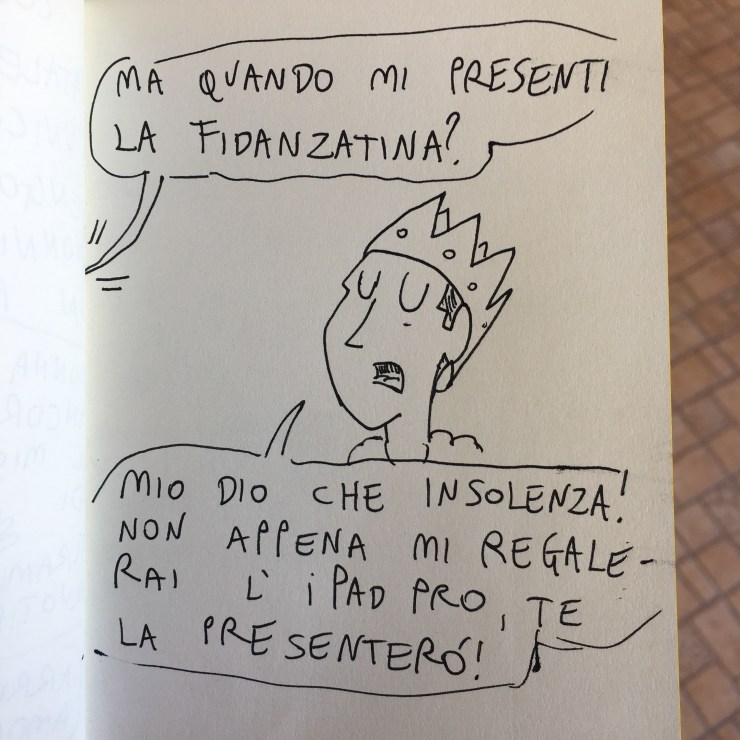 MA QUANDO MI PRESENTI
LA FIDANZATINA?
MIO DIO CHE INSOLENZA!
NON APPENA MI REGALE-
RAI L' iPAD PRO, TE
LA PRESENTERÓ!